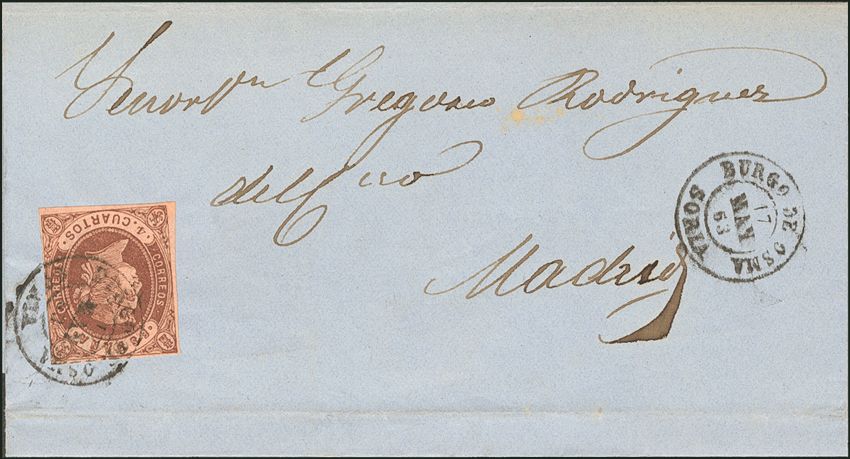 Señor Dn Gregorio Rodriguez
del Cno
Madrid
BURGO DE OSMA
17
MAY
63
SORIA
4. CUARTOS
CORREOS
CORREOS